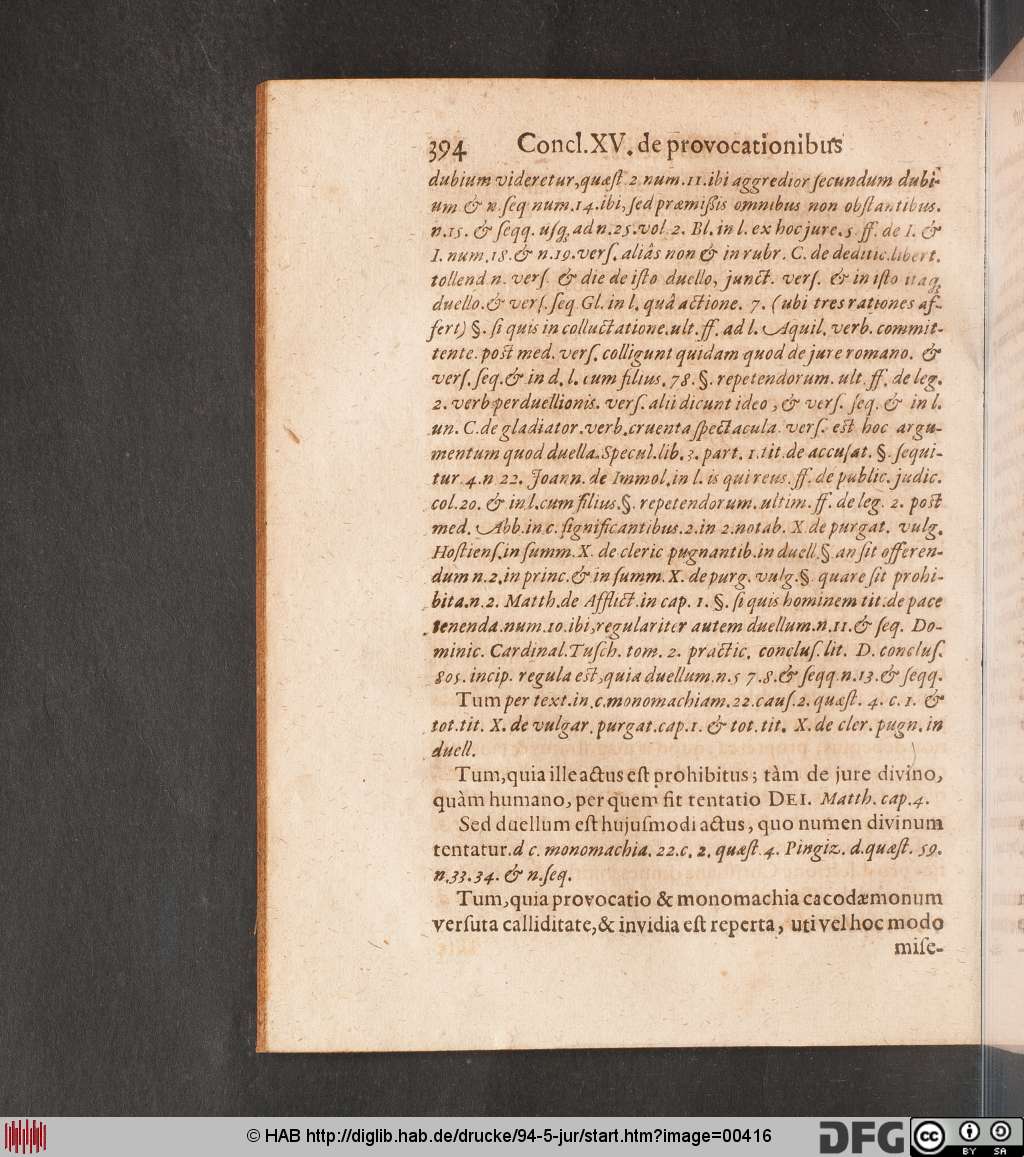 394 Concl.XV. de provocationibus
dubium videretur,quæſt 2 num.11.ibi aggredior ſecundum dubi-
um & n.ſeq num.14.ibi, ſed præmiſſis omnibus non obſtantibus.
n.15. & ſeqq. uſq; ad n.25.vol 2. Bl. in l. ex hoc jure.5 ff. de I. &
I. num.18.& n.19.verſ. aliâs non & in rubr. C. de deditic.libert.
tollend n. verſ. & die de iſto duello, junct. verſ. & in iſto itaq;
duello.& verſ.ſeq Gl. in l. quâ actione. 7. (ubi tres rationes af-
fert) §. ſi quis in colluctatione.ult.ff. ad l. Aquil. verb. commit-
tente. poſt med. verſ. colligunt quidam quod de jure romano. &
verſ. ſeq.& in d. l. cum filius. 78. §. repetendorum. ult ff. de leg.
2. verb perduellionis. verſ. alii dicunt ideo, & verſ. ſeq. & in l.
un. C.de gladiator.verb.cruenta ſpectacula. verſ. eſt hoc argu-
mentum quod duella.Specul.lib.3. part. 1.tit.de accuſat. §. ſequi-
tur 4.n 22. Joann. de Immol.in l. is qui reus. ff. de public. judic.
col.20. & in l.cum filius.§. repetendorum.ultim.ff. de leg. 2. poſt
med. Abb.in c. ſignificantibus.2.in 2.notab. X de purgat. vulg.
Hoſtienſ.in ſumm. X. de cleric pugnantib.in duell.§.an ſit offeren-
dum n.2.in princ.& in ſumm. X. de purg. vulg.§. quare ſit prohi-
bita.n.2. Matth.de Afflict.in cap. 1. §. ſi quis hominem tit.de pace
tenenda.num.10.ibi,regulariter autem duellum.n.11.& ſeq. Do-
minic. Cardinal.Tuſch. tom. 2. practic. concluſ.lit. D. concluſ.
805. incip. regula eſt,quia duellum.n.5 7.8.& ſeqq.n.13.& ſeqq.
Tum per text.in c.monomachiam.22.cauſ.2.quæſt. 4. c. 1. &
tot.tit. X. de vulgar.purgat.cap.1. & tot.tit. X. de cler. pugn.in
duell.
Tum,quia ille actus eſt prohibitus; tàm de jure divino,
quàm humano, per quem fit tentatio DEI. Matth. cap.4.
Sed duellum eſt hujuſmodi actus, quo numen divinum
tentatur.d c. monomachia. 22.c. 2. quæſt. 4. Pingiz. d.quæſt. 59.
n.33.34. & n.ſeq.
Tum,quia provocatio & monomachia cacodæmonum
verſuta calliditate,& invidia eſt reperta, uti vel hoc modo
miſe-
© HAB http://diglib.hab.de/drucke/94-5-jur/start.htm?image=00416
DFG
cc BY SA